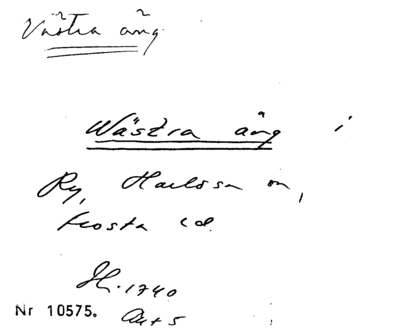 Västra äng
Wästra äng i
Ry, Harlösa sn,
Frosta hd.
Sk. 1740
Akt 5
Nr 10575.